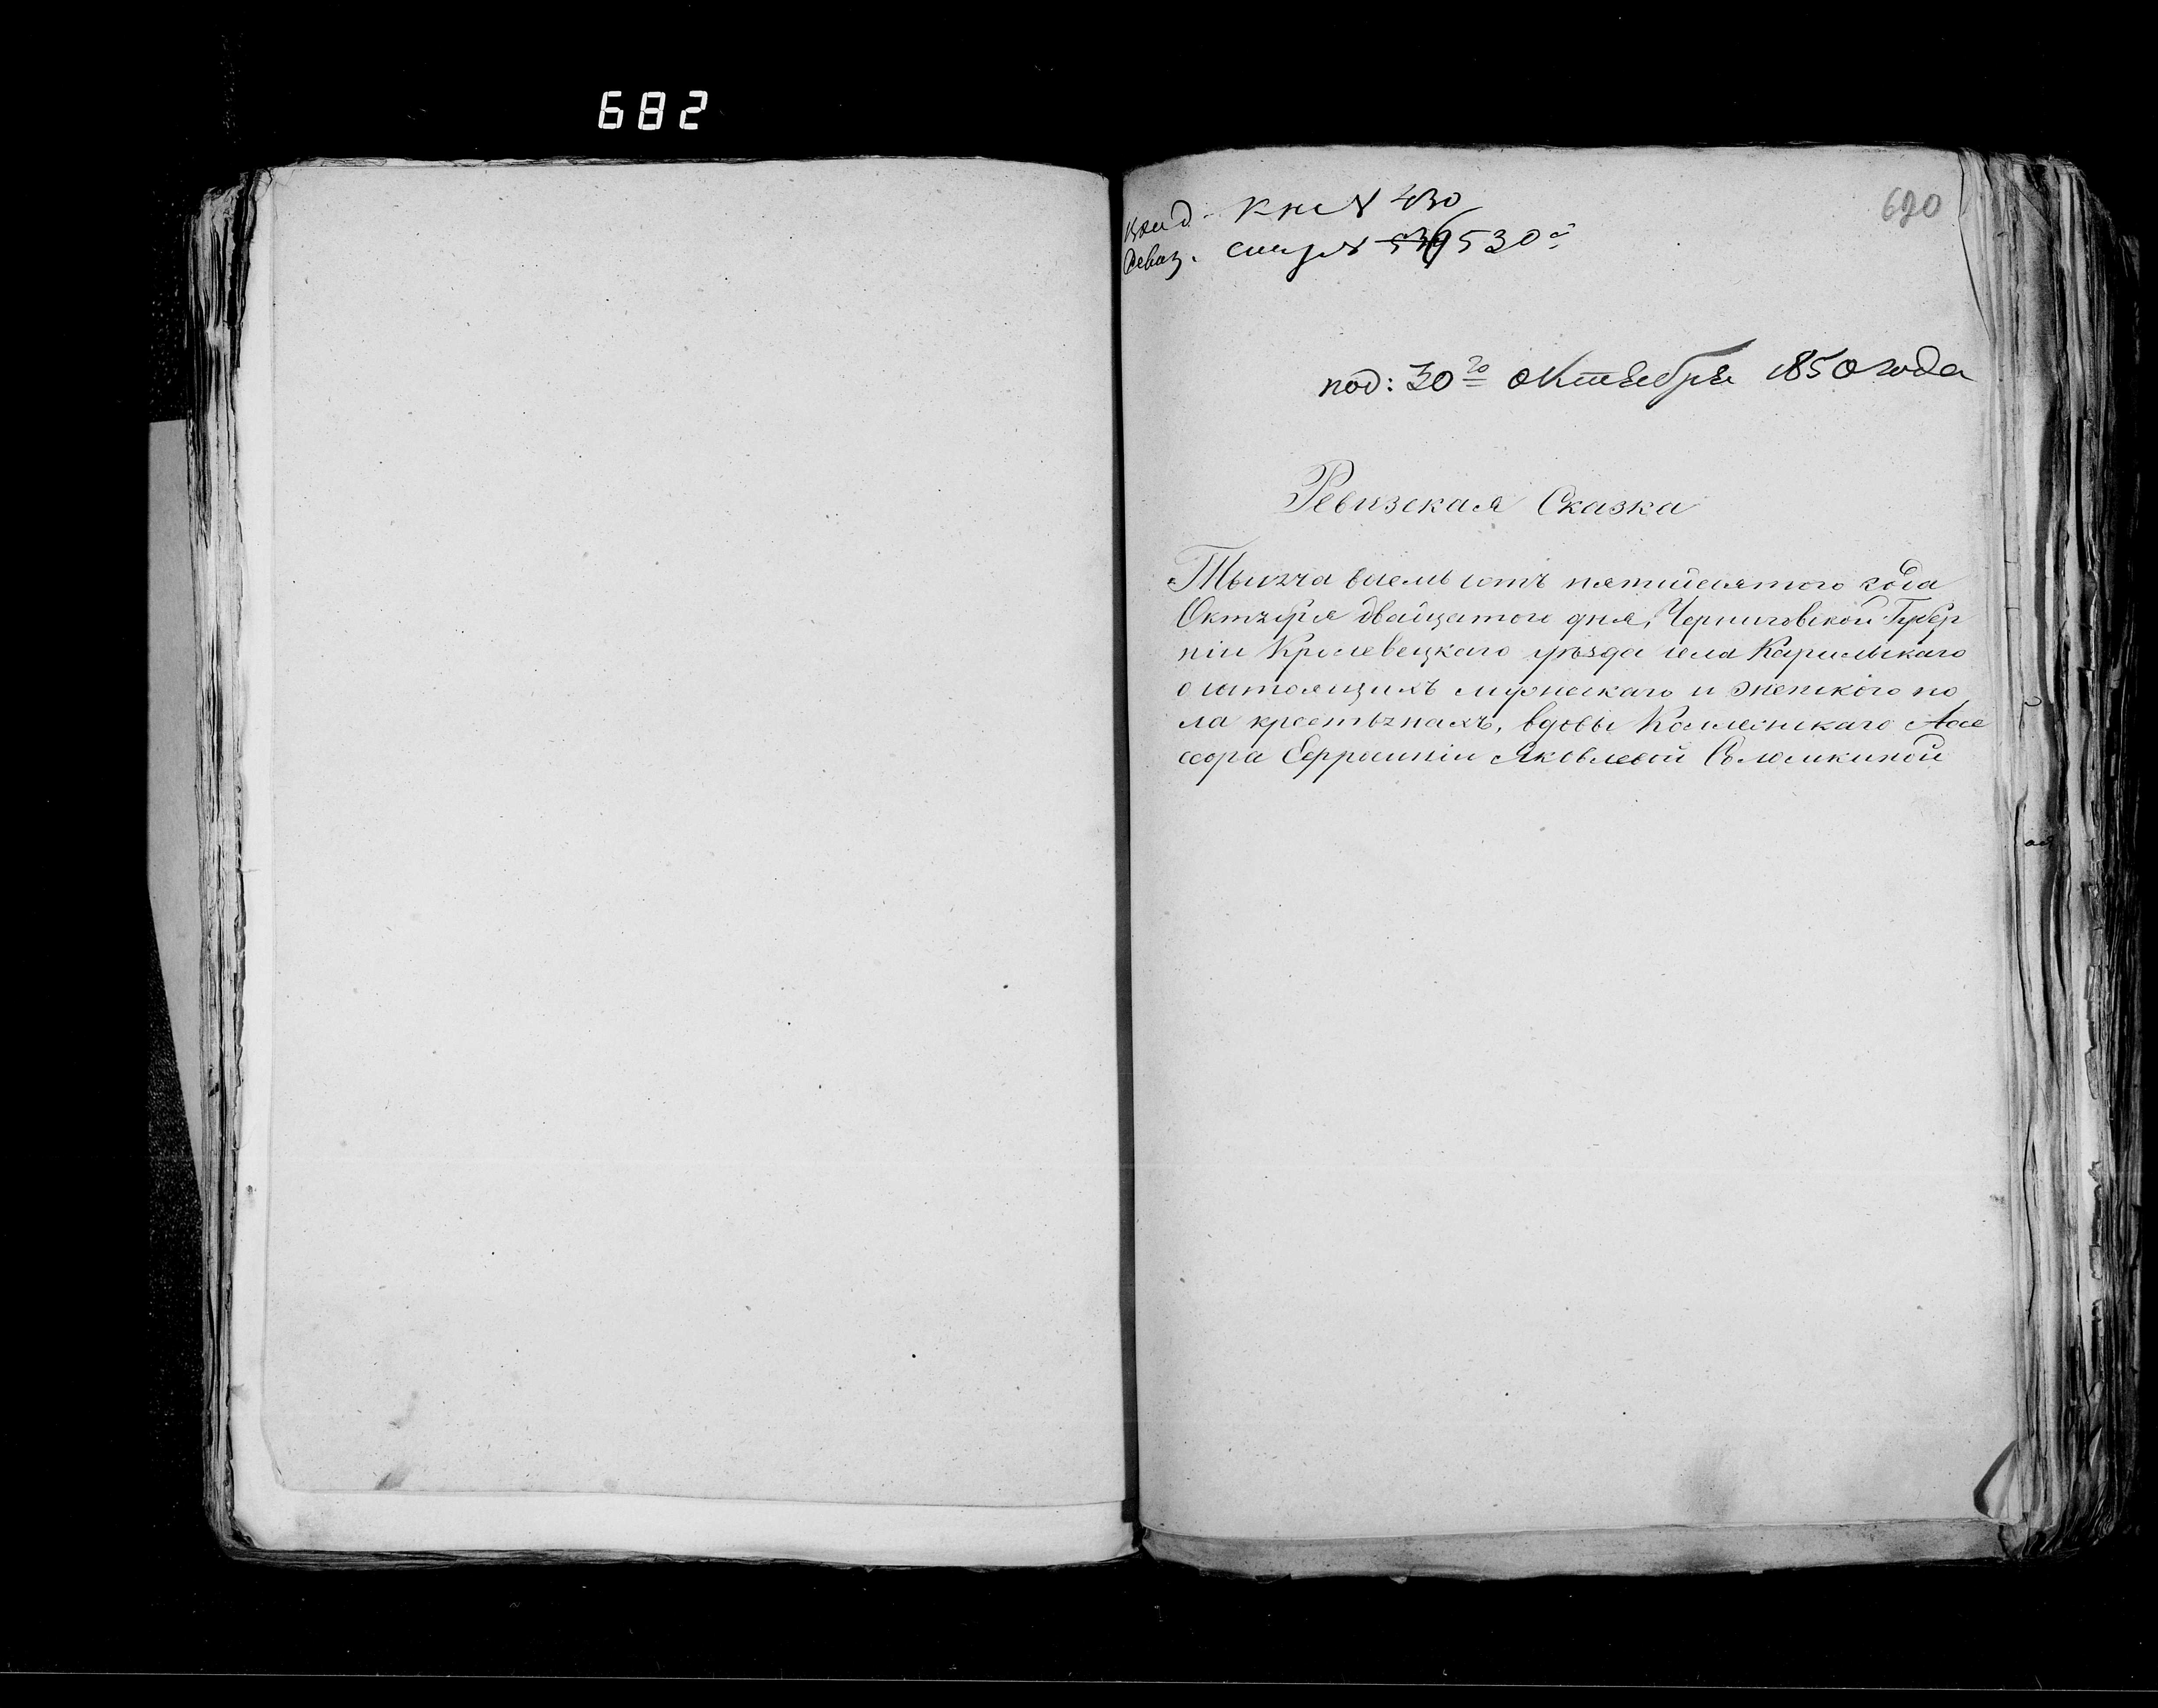 682
кн № 430
620
530
под: 30го октября 1850 года
Ревизская Сказка
Тысяча восемь сотъ пятидесятого года
Октября двадцатого дня, Черниговской Губер
ніи Кролевецкаго уѣзда села Карильскаго
о состоящихъ мужескаго и женского по
ла крестьянахъ, вдовы Коллежскаго Асе
ссора Ефросиніи Яковлевой